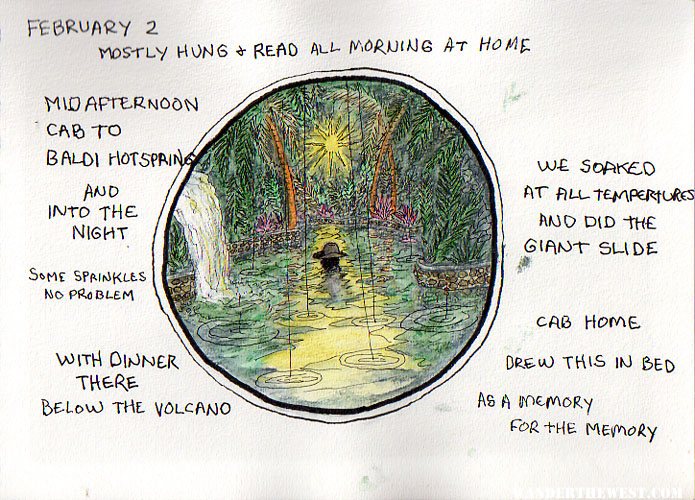 FEBRUARY 2
MOSTLY HUNG + READ ALL MORNING AT HOME
MID AFTERNOON
CAB TO
BALDI HOTSPRING
AND
INTO THE
NIGHT
SOME SPRINKLES
NO PROBLEM
WITH DINNER
THERE
BELOW THE VOLCANO
WE SOAKED
AT ALL TEMPERTURES
AND DID THE
GIANT SLIDE
CAB HOME
DREW THIS IN BED
AS A MEMORY
FOR THE MEMORY